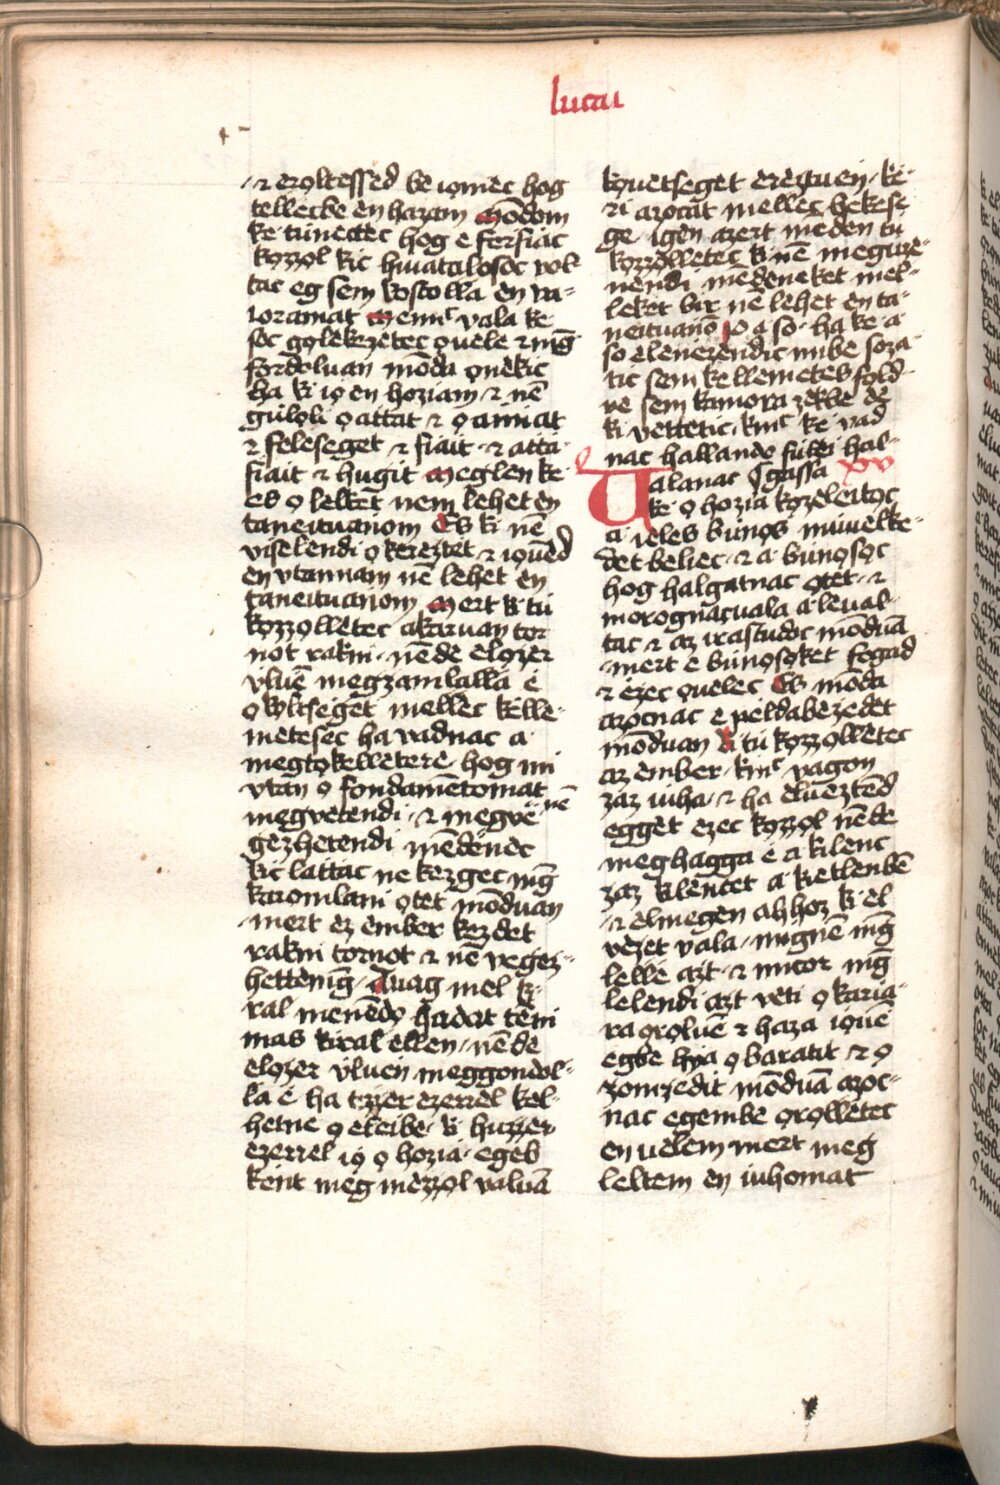 lucau
⁊ erọltessed bè iọnièc hog
tellecbe en hazam Mōdom
kè tùnectec hog e ferfiac
kọzzọl kic hiuatalosoc vol-
tac eg sem kostolla en va-
ioramat Menīc vala kè
sọc gọlèkèzètec ọuèle ⁊ mḡ
fordoluan mōda ọnèkic
ha ki iọ en hoziam ⁊ nē
gùlọli ọ attat ⁊ ọ anniat
⁊ feleseget ⁊ fiait ⁊ atta-
fiait ⁊ hugit Meglen kè-
ed ọ lelkèt nem lehet en
taneituanom Es ki nē
viselendi ọ kèrèztèt ⁊ iọuèd
en vtannam nē lehet en
taneituanom Mert ki tù
kọzzọllètec akaruan tor
not rakni nēde elọzer
vluē megzamlalla e
ọ kọltseget mellec kèlle-
metesec ha vadnac a
megtọkelletere hog mi
vtan ọ fondamētomat
megvetendi ⁊ megvè- nē
gèzhetendi mēdènec
kic lattac nè kezgec mḡ
karomlani ọtèt mōduan
mert ez ember kezdet
rakni tornot ⁊ nē vegez-
hettè mḡ Auag mel ki-
ral menēdọ hadat tèni
mas kiral ellen nēde
elọzer vluen meggondol-
la e ha tizzer ezerrel kel-
hetne ọ eleibe ki huzzer
ezerrel iọ ọ hozia egeb
kent meg mezzọl valuā
kọuetseget erèztuen kè-
ri azocat mellec bekese
ge Igen azert mēden tù
kọzzọllètec ki nē megùze-
nendi mēdenèket mel-
lèket bir nē lehet en ta-
neituanō Io a so ha kè a
so elenezèndic mibè soza-
tic sem kèllemetes fold-
re sem kamora zekbe de
ki vettetic kinc kè vad
nac hallando fùlèi hal-
Valanac gassa xv
kè ọ hozia kọzeleitọc
a ieles bùnọs miuèlke-
det bèliec ⁊ a bùnọsọc
hog halgatnac ọtèt ⁊
morognacuala a leual-
tac ⁊ az irastudoc mōduā
mert e bùnọsọket fogad
⁊ èzec ọuèlec Es mōda
azocnac e peldabezedèt
mōduan Ki tù kọzzọllètec
az ember kinc vagon
zaz iuha ⁊ ha elueztēd
eggèt ezec kọzzọl nēde
meghagga e a kilenc
zaz kilencèt a kietlenbē
⁊ elmegèn ahhoz ki el
vezèt vala mignē mḡ
lelle azt ⁊ micor mḡ
lelendi azt veti ọ karia-
ra ọrọluē ⁊ haza iọuē
egbe hija ọ baratit ⁊ ọ
zomzedit mōduā azoc-
nac egembe ọrọllètec
en uèlem mert meg
lèltem en iuhomat